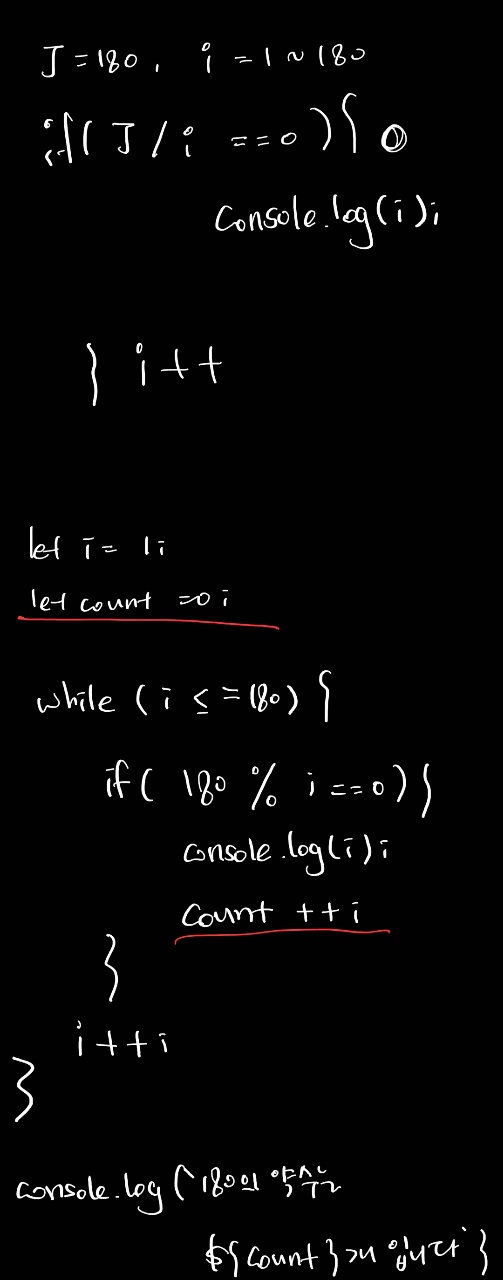 J = 180, i = 1 ~ 180
if( J / i == 0 ){ 0
console.log(i);
} i++
let i = 1;
let count = 0;
while ( i <= 180) {
if( 180 % i == 0 ){
console.log(i);
count ++;
}
i++;
}
console.log(`180의 약수는
${count}개 입니다`}